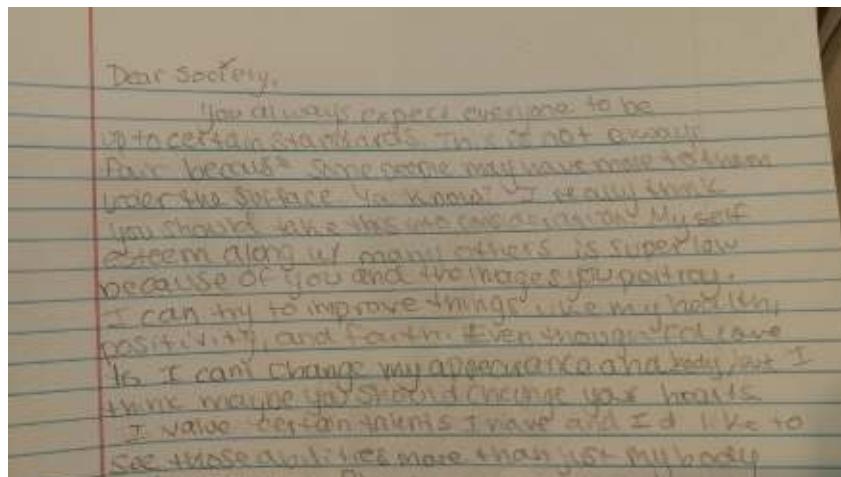 Dear Society,
You always expect everyone to be
up to certain standards. This is not always
fair because some people may have more to them
under the surface. Ya know? I really think
you should take this into consideration. My self
esteem along w/ many others is super low
because of you and the images you portray.
I can try to improve things like my health,
positivity, and faith. Even though I'd love
to I can't change my appearance and body, but I
think maybe you should change your hearts
I value certain talents I have and I'd like to
see those abilities more than just my body